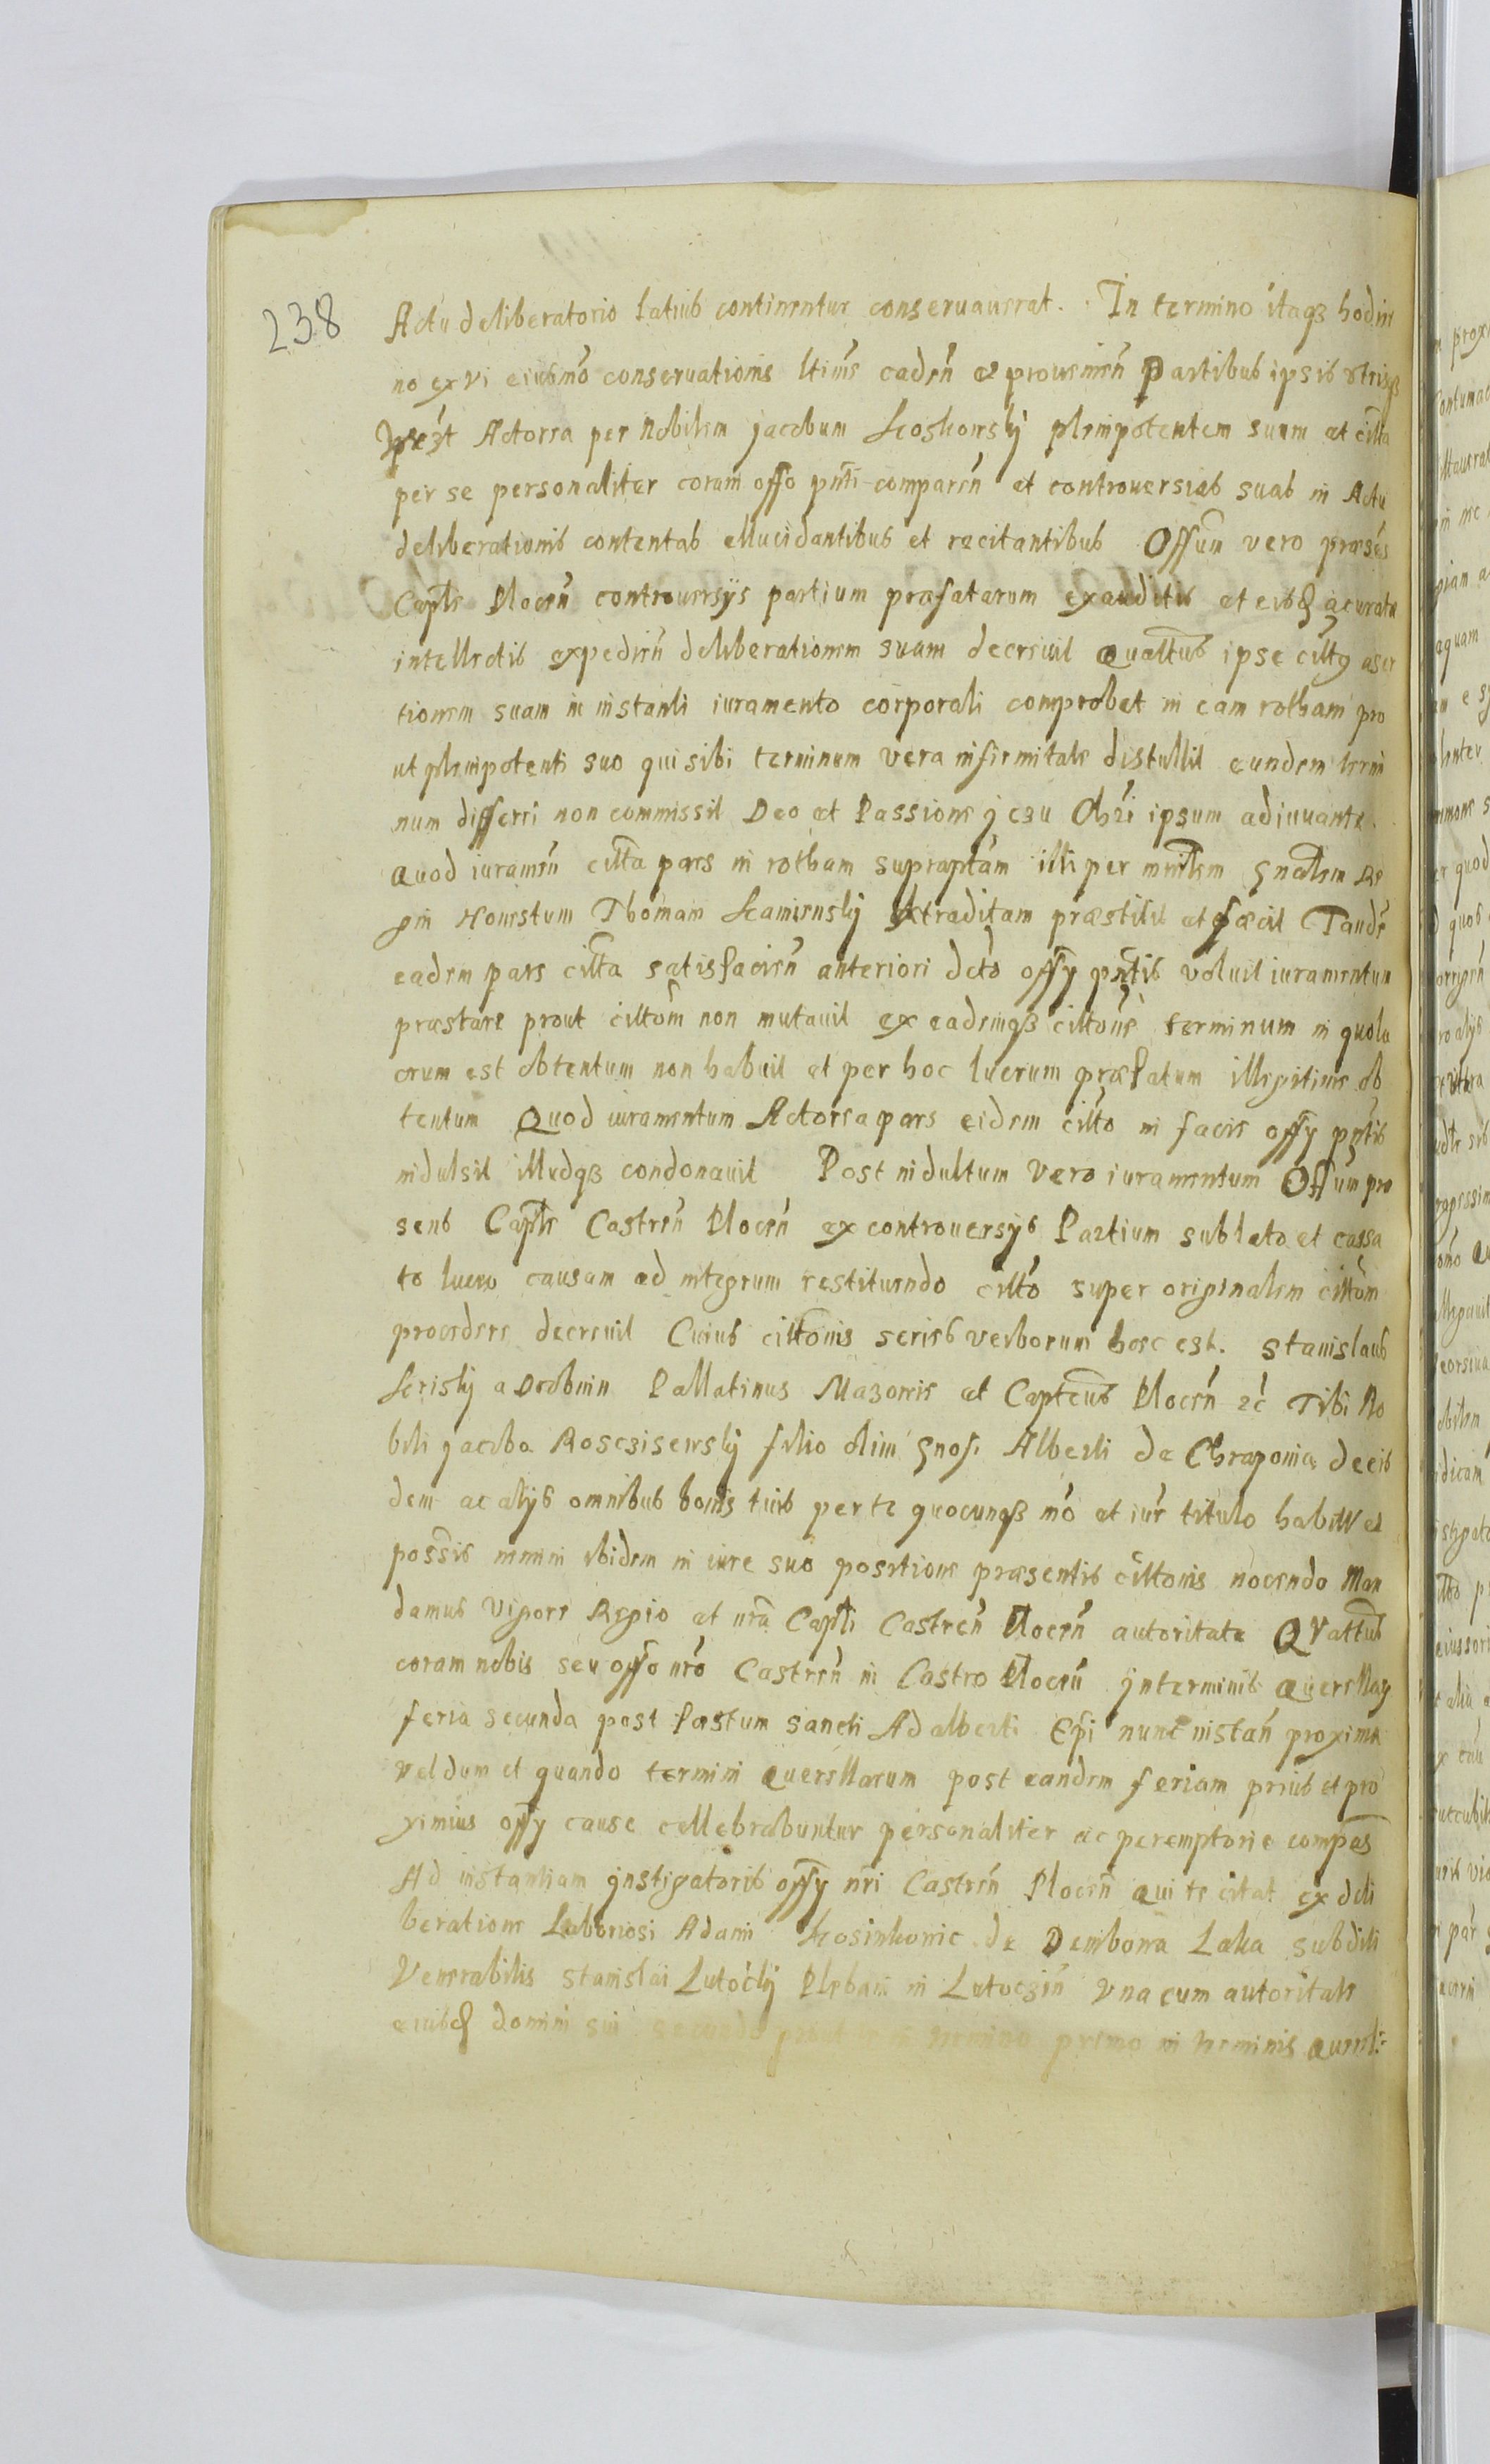 238
Actu deliberatorio latius continentur conseruauerat. In termino itaqß hodier
no ex vi eiusmo conseruationis ltime caden et prouenien Partibus ipsis utrisqß
Actorea per Nobilem jacobum Koskowskÿ plenipotentem suum et citta
per se personaliter coram offo pnti comparen et controuersias suas in Actu
deliberationis contentas ellucidantibus et recitantibus Offum vero præsens
Caple Plocen controuersÿs partium præfatarum exauditis et eisq acurate
intellectis expedien deliberationem suam decreuit Quattus ipse cittg aser
tionem suam in instanti iuramento corporali comprobet in eam rotham pro
ut plenipotenti suo qui sibi terminum vera infirmitate distullit eundem termi
num differri non commissit Deo et Passione jezu Chri ipsum adiuuante.
Quod iuramen citta pars in rotham supraptam illi per mnrlem gnalem Re
gni Honestum Thomam Kamienskÿ traditam præstitit et fæcit Tande
eadem pars citta satisfacien anteriori dcto offÿ pntis voluit iuramentum
præstare prout cittom non mutauit ex eademqß cittone terminum in quo lu
crum est obtentum non habuit et per hoc lucrum præfatum illegitime ob
tentum Quod iuramentum Actorea pars eidem citto in facie offÿ pntis
indulsit illudqß condonauit Post indultum vero iuramentum Offum præ
sens Caple Castren Plocen ex controuersÿs Partium sublato et cassa
to lucro causam ad integrum restituendo citto super originalem cittom
procedere decreuit Cuius cittonis series verborum hæc est. Stanislaus
Kriskÿ a Drobnin Pallatinus Mazowie et Capteus Plocen ec Tibi No
bili jacobo Roscziseuskÿ filio olim gnosi Alberti de Chraponia de eis
dem ac alÿs omnibus bonis tuis per te quocunqß mo et iure titulo habitis et
possis nemini ibidem in iure suo positione præsentis cittonis nocendo Man
damus vigore Regio et nra Capli Castren Plocen autoritate Quattus
coram nobis seu offo nro Castren in Castro Plocen jn terminis Querellaӡ
feria secunda post fæstum sancti Adalberti Epi nunc instan proxima
vel dum et quando termini Querellarum post eandem feriam prius et pro
ximius offÿ cause cellebrabuntur personaliter ac peremptorie compas
Ad instantiam jnstigatoris offÿ nri Castren Plocen qui te citat ex deli
beratione Laboriosi Adami Kosinkowic de Dembowa Laka subditi
Venerabilis Stanislai Lutockÿ Plebani in Lutoczin vna cum autoritate
eiusq domini sui secundo prout in termino primo in terminis Querel: